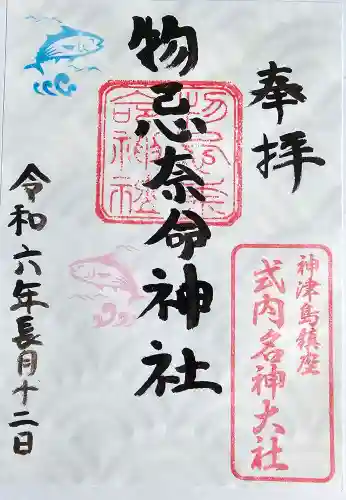 奉拝
神津島鎮座
式内名神大社
物忌奈命神社
令和六年長月十二日